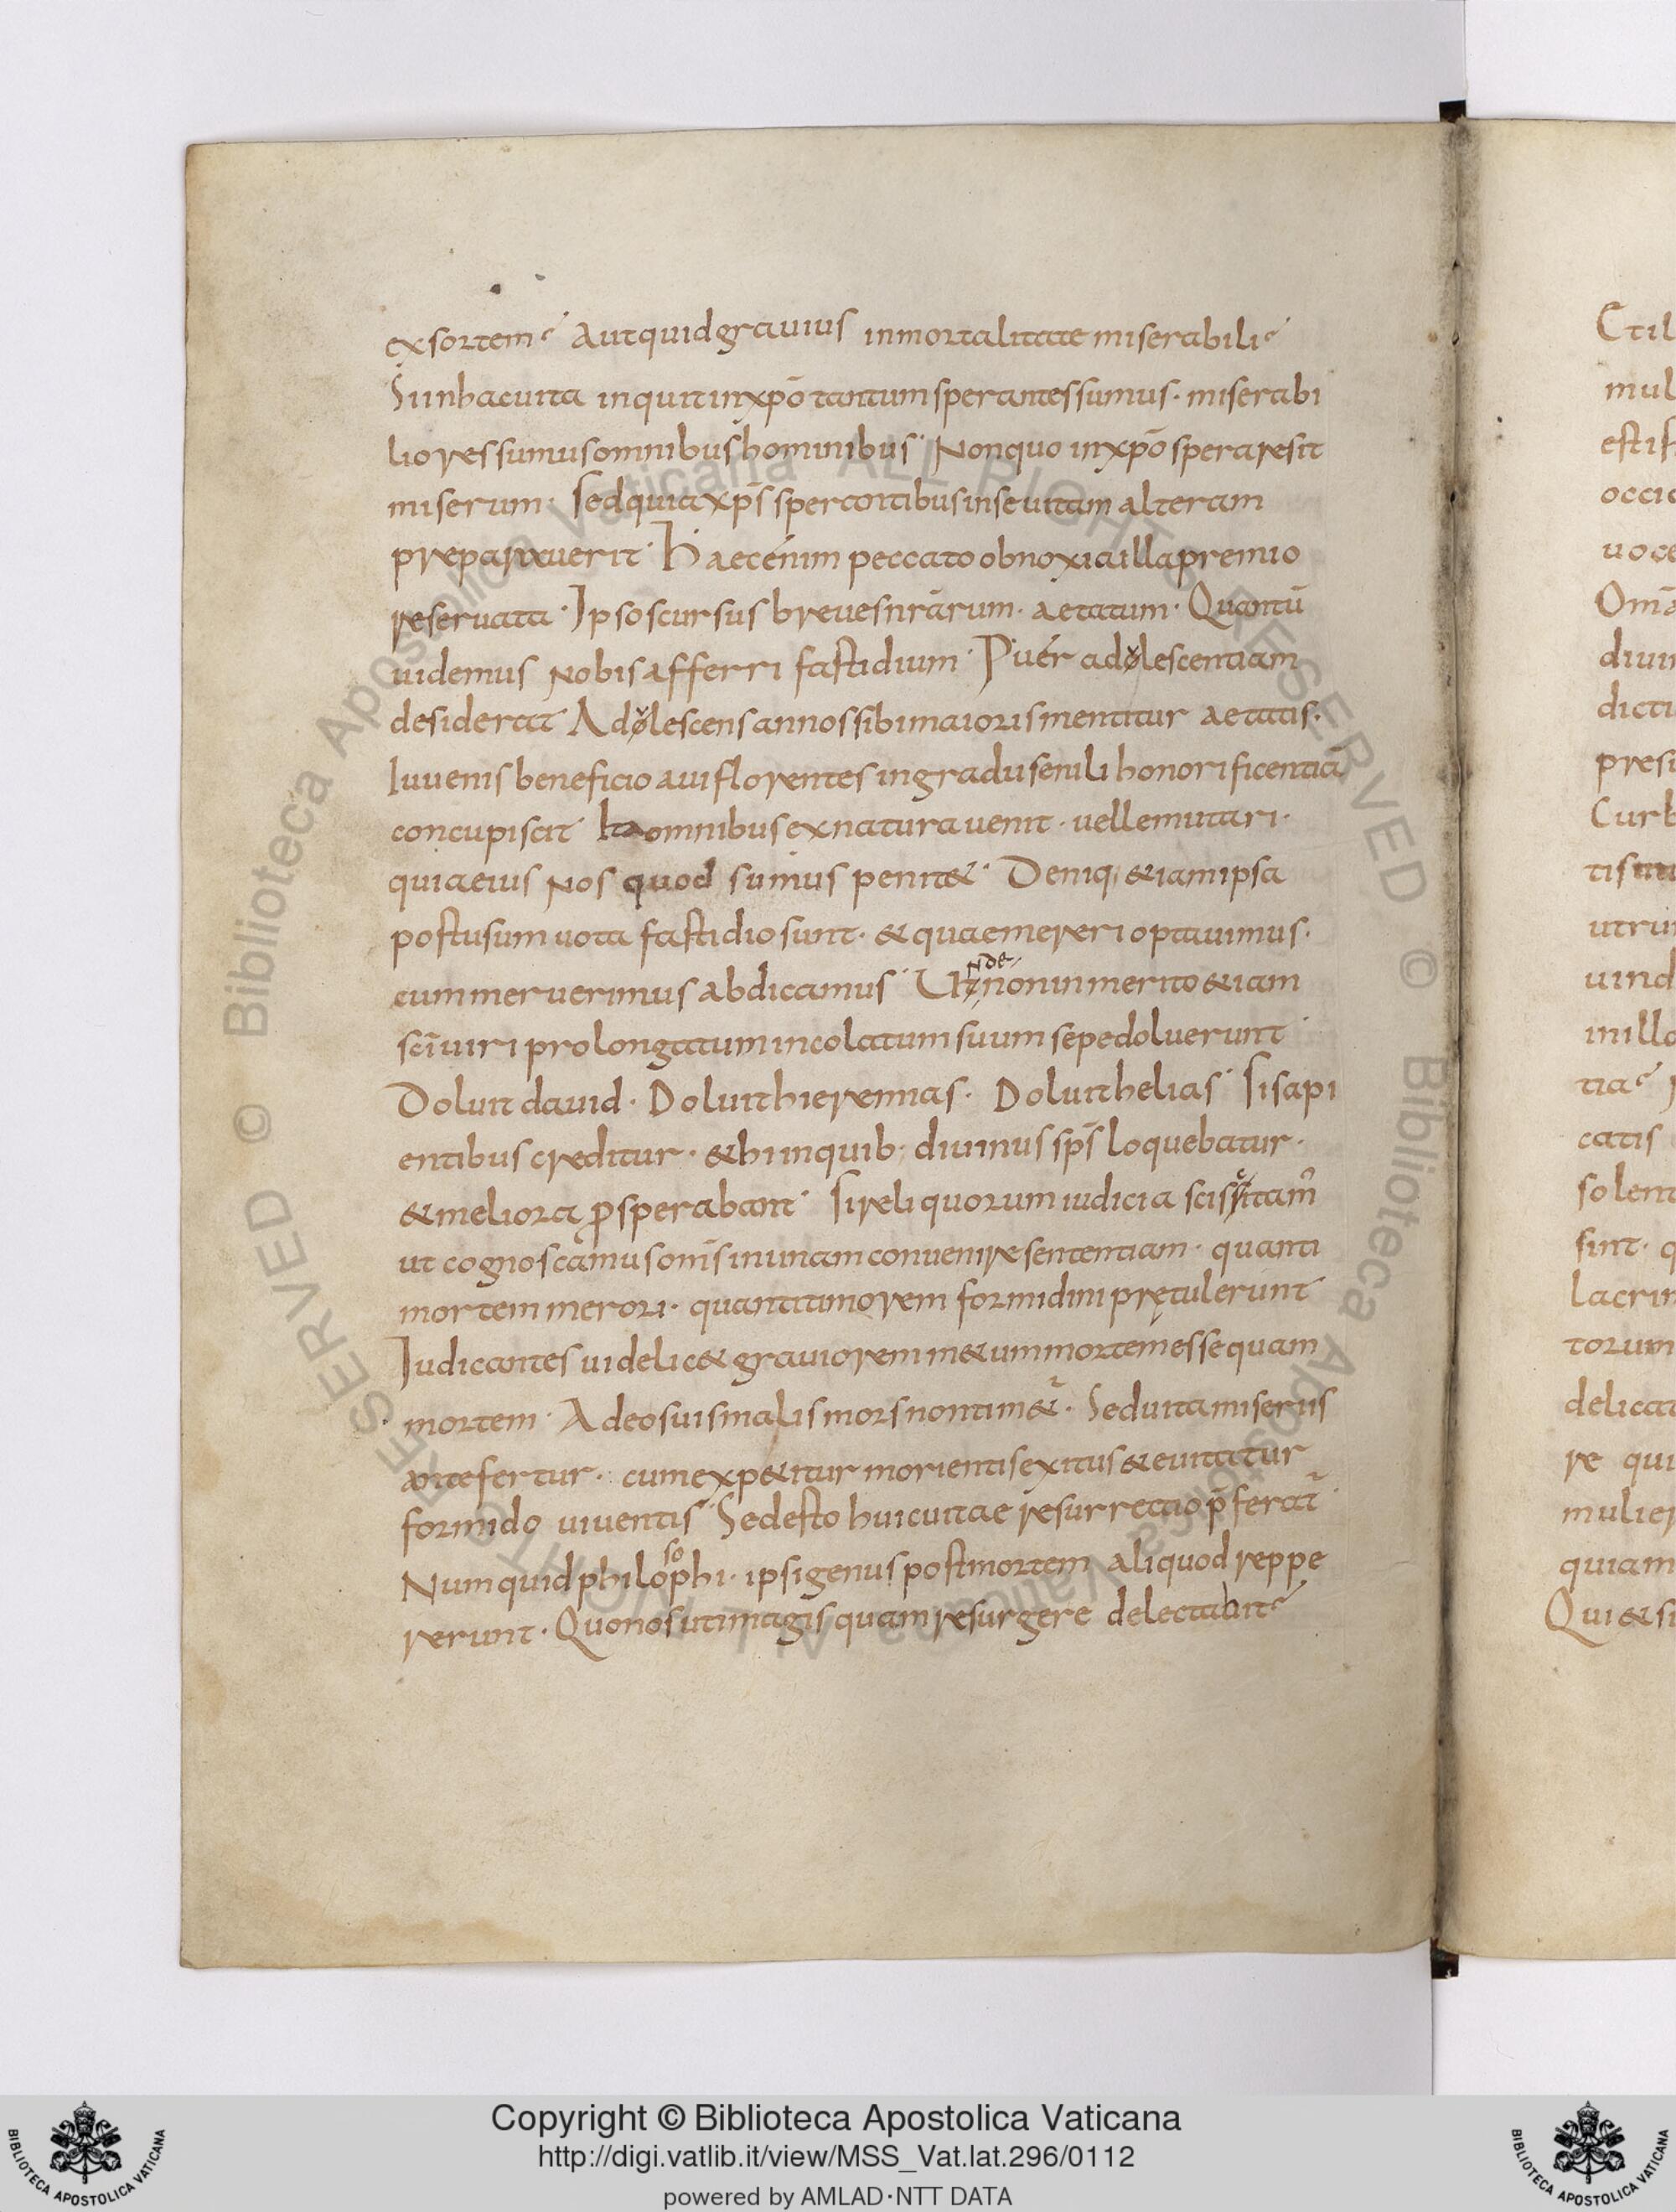 exsortem? Aut quid grauius inmortalitate miserabili?
Si in hac uita inquit in xp̄o tantum sperantes sumus · miserabi
liores sumus omnibus hominibus · Non quo in xp̄o sperare sit
miserum · sed quia xp̄s sperantibus in se uitam alteram
preparauerit · Haec enim peccato obnoxia illa premio
reseruata · Ipsos cursus breues nr̄arum · aetatum · Quantū
uidemus nobis afferri fastidium · Puer adolescentiam
desiderat · Adolescens annos sibi maioris mentitur aetatis ·
Iuuenis beneficio aui florentes in gradu senili honorificentiā
concupiscit · Ita omnibus ex natura uenit · uelle mutari ·
quia eius nos quod sumus penit& · Deniq; &iam ipsa
post usum uota fastidio sunt · & quae mereri optauimus ·
cum meruerimus abdicamus · Unde non inmerito &iam
sc̄i uiri prolongatum incolatum suum sepe doluerunt ·
Doluit dauid · Doluit hieremias · Doluit helias · Si sapi
entibus creditur · & hi in quib; diuinus sp̄s loquebatur ·
& meliora ꝓsperabant · si reliquorum iudicia sciscitam̄
ut cognoscamus om̄s in unam conuenire sententiam · quanti
mortem merori · quanti timorem formidini prętulerunt ·
Iudicantes uidelic& grauiorem m&um mortem esse quam
mortem · Adeo suis malis mors non tim&̄ · Sed uita miseriis
antefertur · cum exp&itur morientis exitus & euitatur
formido uiuentis · Sed esto huic uitae resurrectio p̄ferat̄ ·
Numquid philosophi · ipsi genus post mortem aliquod reppe
rerunt · Quo nos uti magis quam resurgere delectabit?
© Biblioteca Apostolica Vaticana ALL RIGHTS RESERVED © Biblioteca Apostolica Vaticana ALL RIGHTS RESERVED
Copyright © Biblioteca Apostolica Vaticana
http://digi.vatlib.it/view/MSS_Vat.lat.296/0112
powered by AMLAD·NTT DATA
BIBLIOTECA APOSTOLICA VATICANA
BIBLIOTECA APOSTOLICA VATICANA